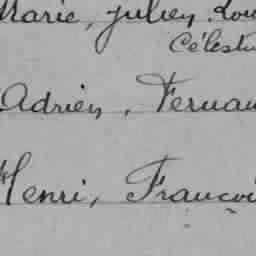 Marie, Julien, Lou
Célestin
Adrien, Fernan
Henri, Françoi